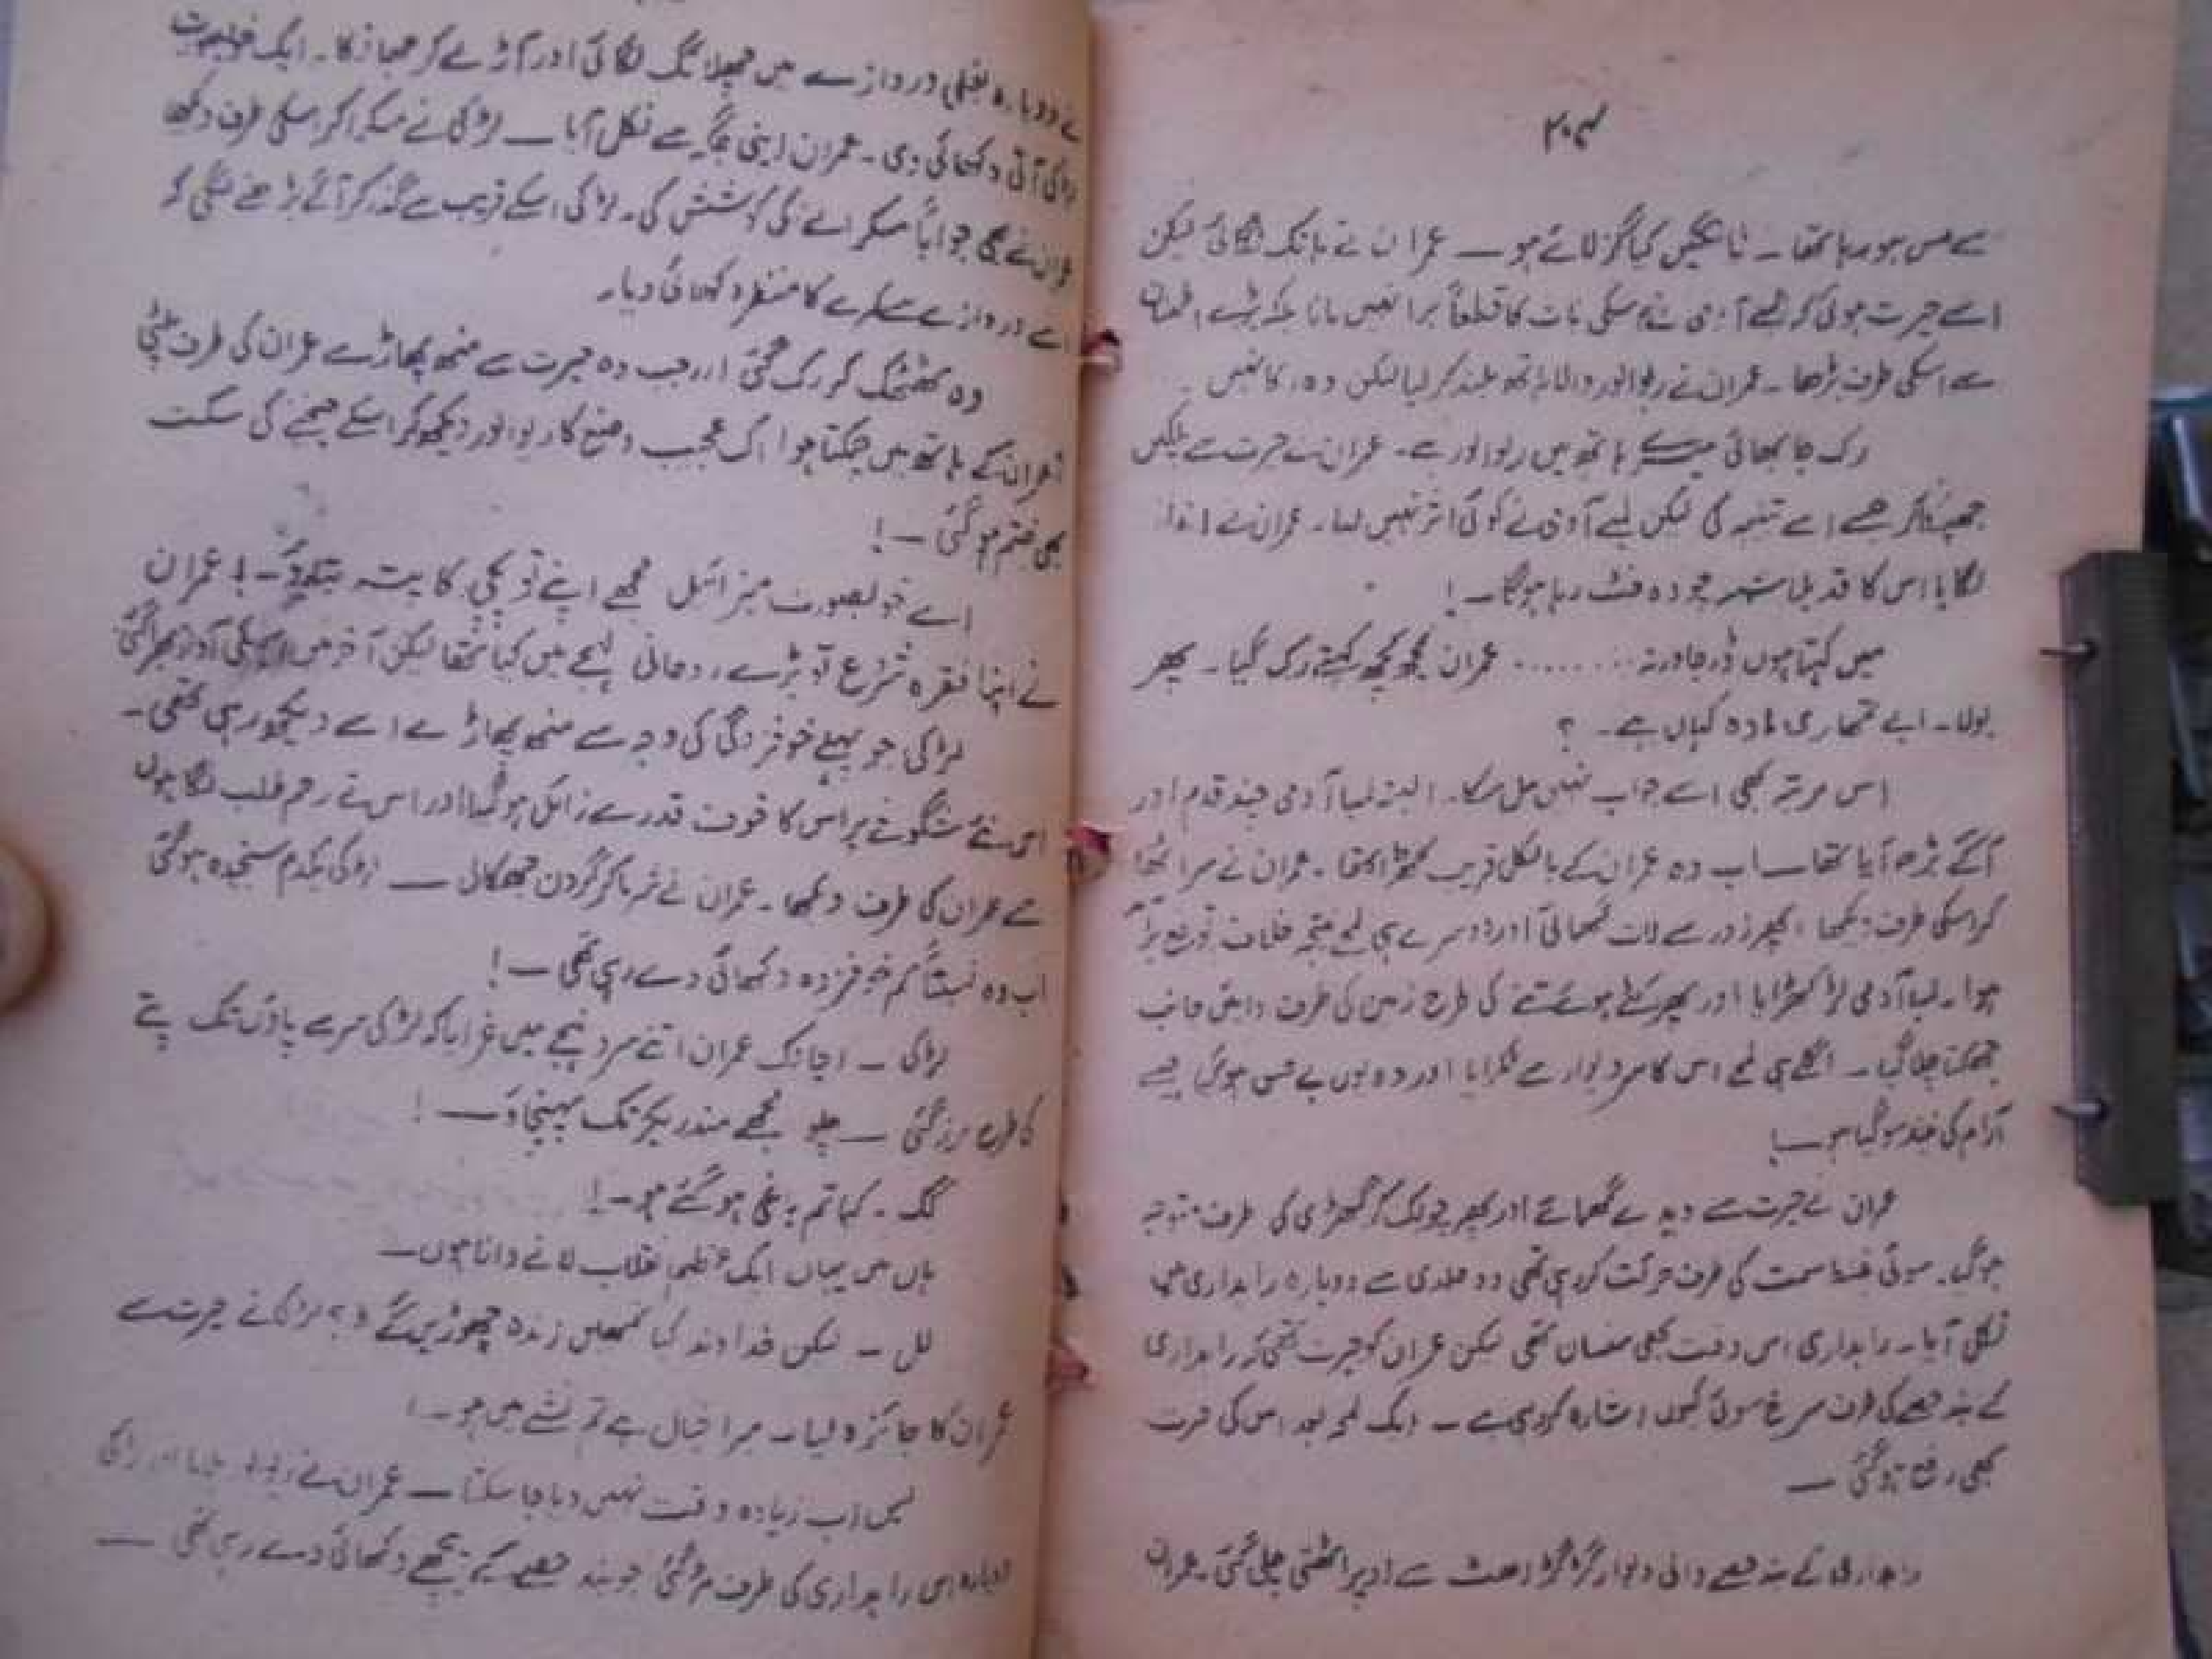 ۲۰۴
سے مس ہو رہا تھا ۔ ٹانگیں کیا گز لائے ہو ـــ عمران نے ہانک لگائی لیکن
اسے حیرت ہوئی کہ لمبے آدمی نے اسکی بات کا قطعاً برا نہیں مانا بلکہ بڑے اطمینان
سے اسکی طرف بڑھا ۔ عمران نے ریوالور والا ہاتھ بلند کر لیا لیکن وہ رکا نہیں ۔
رک جا بھائی میرے ہاتھ میں ریوالور ہے ۔ عمران نے حیرت سے پلکیں
جھپکا کر جیسے اسے تنبیہہ کی لیکن لمبے آدمی نے کوئی اثر نہیں لیا ۔ عمران نے اندازہ
لگایا اس کا قد بلا شبہ چودہ فٹ رہا ہوگا ۔!
میں کہتا ہوں ڈر جا ورنہ ........ عمران کچھ کہتے رک گیا ۔ پھر
بولا ۔ ابے تمھاری مادہ کہاں ہے ۔ ؟
اس مرتبہ بھی اسے جواب نہیں مل سکا ۔ البتہ لمبا آدمی چند قدم اور
آگے بڑھ آیا تھا ـــ اب وہ عمران کے بالکل قریب کھڑا تھا ۔ عمران نے سر اٹھا
کر اسکی طرف دیکھا ، پھر زور سے لات گھمائی اور دوسرے ہی لمحے نتیجہ خلاف توقع برآمد
ہوا ۔ لمبا آدمی لڑکھڑایا اور پھر کٹے ہوئے تنے کی طرح زمین کی طرف داہنی جانب
جھکتا چلا گیا ۔ اگلے ہی لمحے اس کا سر دیوار سے ٹکرایا اور وہ یوں بے حس ہو گیا جیسے
آرام کی نیند سو گیا ہو ـــ!
عمران نے حیرت سے دیدے گھمائے اور پھر چونک کر گھڑی کی طرف متوجہ
ہو گیا ۔ سوئی سمت کی طرف حرکت کر رہی تھی وہ جلدی سے دوبارہ راہداری میں
نکل آیا ۔ راہداری اس وقت بھی سنسان تھی لیکن عمران کو حیرت تھی کہ راہداری
کے بند حصے کی طرف سرخ سوئی کیوں اشارہ کر رہی ہے ۔ ایک لمحہ بعد اس کی حیرت
بھی رفع ہو گئی ـــ
راہداری کے بند حصے والی دیوار گڑگڑاہٹ سے اوپر اٹھتی چلی گئی ۔ عمران
نے دوبارہ بغلی دروازے میں چھلانگ لگائی اور آڑ لے کر جھانکا ۔ ایک خوبصورت
لڑکی آتی دکھائی دی ۔ عمران اپنی جگہ سے نکل آیا ـــ لڑکی نے مسکرا کر اسکی طرف دیکھا
عمران نے بھی جواباً مسکرانے کی کوشش کی ۔ لڑکی اسکے قریب سے گذر کر آگے بڑھنے لگی کہ
اسے دروازے کا منظر دکھائی دیا ۔
وہ ٹھٹھک کر رک گئی اور جب وہ حیرت سے منھ پھاڑے عمران کی طرف پلٹی
تو عمران کے ہاتھ میں چمکتا ہوا اک عجیب وضع کا ریوالور دیکھ کر اسکے چیخنے کی سکت
بھی ختم ہو گئی ـــ!
اے خوبصورت میزائیل مجھے اپنے توپچی کا پتہ بتلاؤ ۔! عمران
نے اپنا فقرہ شروع تو بڑے رومانی لہجے میں کیا تھا لیکن آخر میں اسکی آواز بھرا گئی
لڑکی جو پہلے خوفزدگی کی وجہ سے منھ پھاڑے اسے دیکھ رہی تھی ۔
اس نئے شگوفے پر اس کا خوف قدرے زائل ہو گیا اور اس نے رحم طلب نگاہوں
سے عمران کی طرف دیکھا ۔ عمران نے شرما کر گردن جھکالی ـــ لڑکی یکدم سنجیدہ ہو گئی
اب وہ نسبتاً کم خوفزدہ دکھائی دے رہی تھی ـــ!
لڑکی ۔ اچانک عمران اتنے سرد لہجے میں غرایا کہ لڑکی سر سے پاؤں تک پتے
کی طرح لرز گئی ـــ چلو مجھے مندر بیکر تک پہنچاؤ ـــ!
کک ۔ کیا تم باغی ہو گئے ہو ۔!
ہاں میں یہاں ایک عظیم انقلاب لانے والا ہوں ـــ
لل ۔ لیکن خداوند کیا تمھیں زندہ چھوڑیں گے ؟ لڑکی نے حیرت سے
عمران کا جائزہ لیا ۔ میرا خیال ہے تم نشے میں ہو ۔!
بس اب زیادہ وقت نہیں دیا جا سکتا ـــ عمران نے ریوالور ہلایا اور لڑکی
دوبارہ اس راہداری کی طرف مڑ گئی جو بند حصے کے پیچھے دکھائی دے رہی تھی ـــ